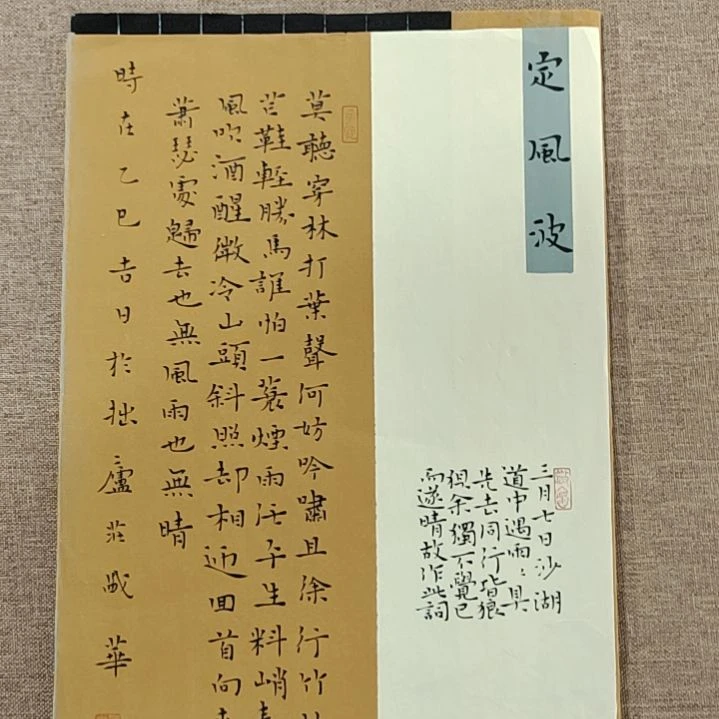 定風波
三月七日沙湖
道中遇雨雨具
先去同行皆狼
狽余獨不覺已
而遂晴故作此詞
莫聽穿林打葉聲何妨吟嘯且徐行竹
芒鞋輕勝馬誰怕一蓑煙雨任平生料峭春
風吹酒醒微冷山頭斜照却相迎回首向
蕭瑟處歸去也無風雨也無晴
時在乙巳吉日於拙拙廬莊成華